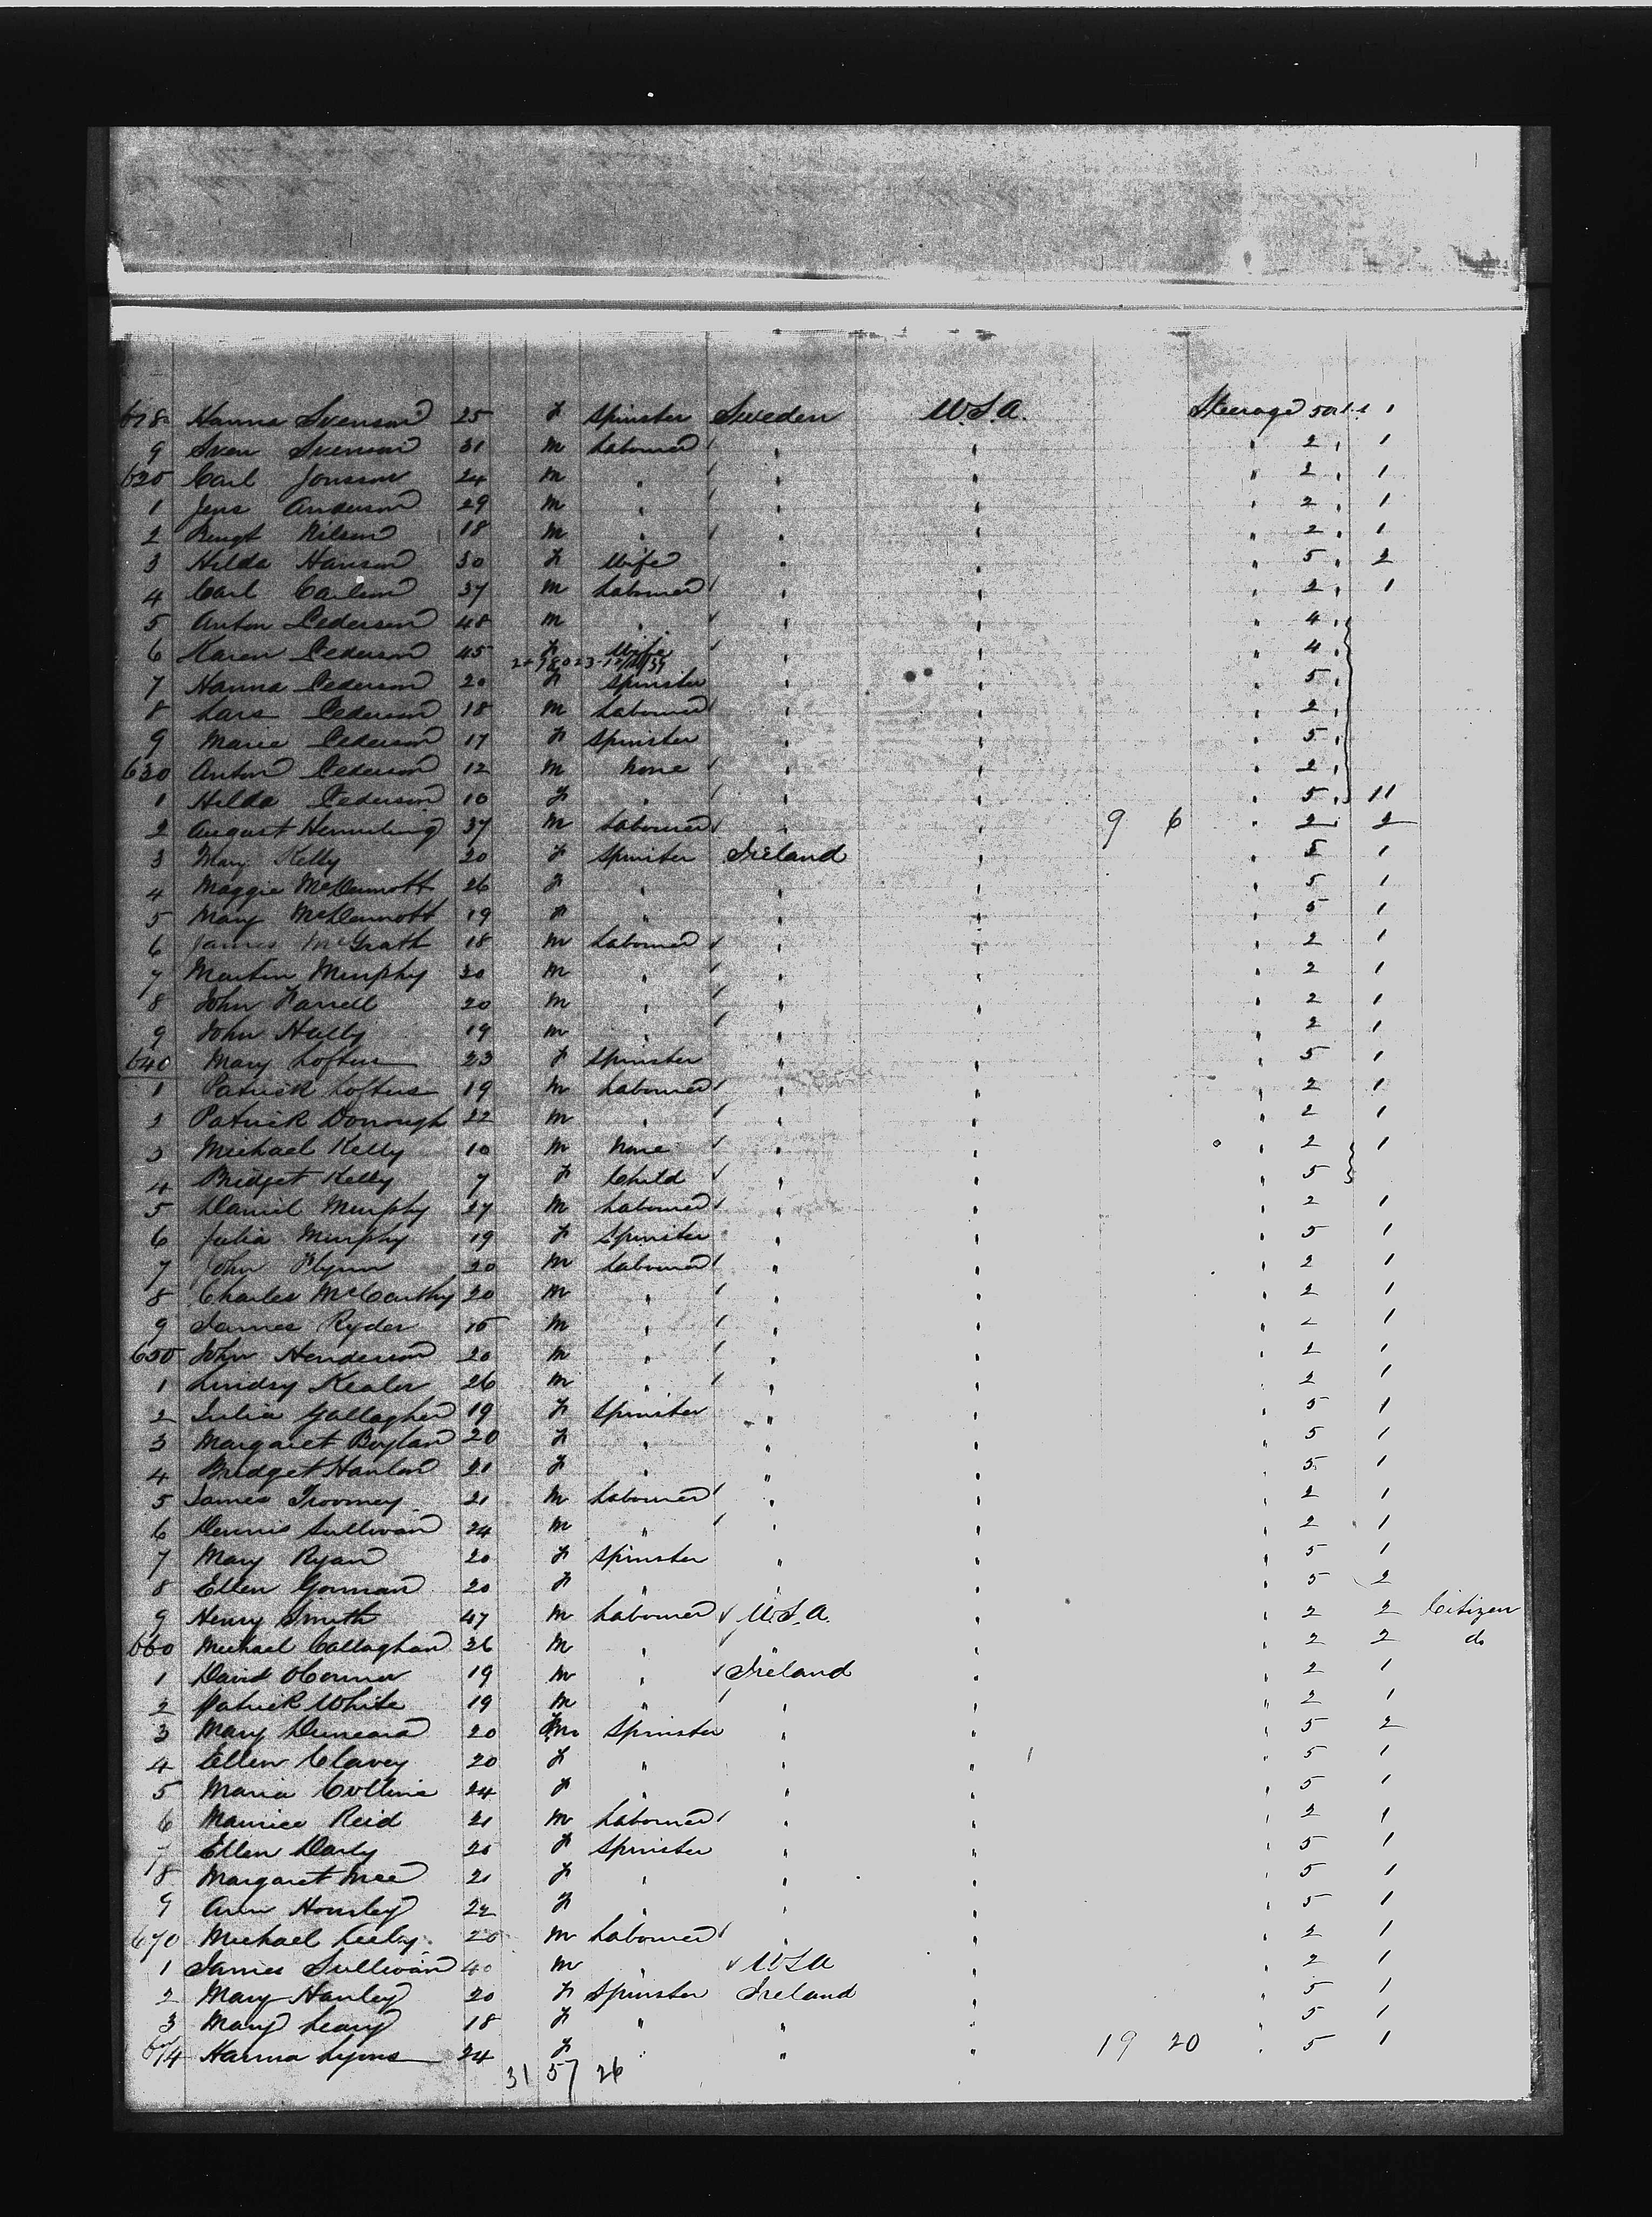 618 Hanna Svenson 25 F Spinster Sweden U.S.A. Steerage 1
9 Sven Svenson 31 M Labourer " " " 2 " 1
620 Carl Jonsson 24 M " " " " 2 " 1
1 Jens Anderson 29 M " " " " 2 " 1
2 Bengt Nilson 18 M " " " " 2 " 1
3 Hilda Hanson 30 F Wife " " " 5 " 2
4 Carl Carlson 37 M Labourer " " " 2 " 1
5 Anton Pederson 48 M " " " " 4 "
6 Karen Pederson 45 F Wife " " " 4 "
7 Hanna Pederson 20 F Spinster " " " 5 "
8 Lars Pederson 18 M Labourer " " " 2 "
9 Marie Pederson 17 F Spinster " " " 5 "
630 Anton Pederson 12 M None " " " 2 "
1 Hilda Pederson 10 F " " " " 5 " 11
2 August Hemmling 37 M Labourer " " 9 6 " 2 2
3 Mary Kelly 20 F Spinster Ireland " " 5 1
4 Maggie McDermott 26 F " " " " 5 1
5 Mary McDermott 19 F " " " " 5 1
6 James McGrath 18 M Labourer " " " 2 1
7 Martin Murphy 20 M " " " " 2 1
8 John Farrell 20 M " " " " 2 1
9 John Hally 19 M " " " " 2 1
640 Mary Loftus 23 F Spinster " " " 5 1
1 Patrick Loftus 19 M Labourer " " " 2 1
2 Patrick Donough 22 M " " " " 2 1
3 Michael Kelly 10 M None " " " 2 1
4 Bridget Kelly 7 F Child " " " 5
5 Daniel Murphy 27 M Labourer " " " 2 1
6 Julia Murphy 19 F Spinster " " " 5 1
7 John Flynn 20 M Labourer " " " 2 1
8 Charles McCarthy 20 M " " " " 2 1
9 James Ryder M " " " " 2 1
650 John Henderson 20 M " " " " 2 1
1 Lindsy Kealer 26 M " " " " 2 1
2 Julia Gallagher 19 F Spinster " " " 5 1
3 Margaret Boylan 20 F " " " " 5 1
4 Bridget Hanlon 21 F " " " " 5 1
5 James Troomey 21 M Labourer " " " 2 1
6 Dennis Sullivan 24 M " " " " 2 1
7 Mary Ryan 20 F Spinster " " " 5 1
8 Ellen Gorman 20 F " " " " 5 2
9 Henry Smith 47 M Labourer U.S.A. " " 2 2 Citizen
660 Michael Callaghan 26 M " " " " 2 2 do
1 David O'Connor 19 M " Ireland " " 2 1
2 Patrick White 19 M " " " " 2 1
3 Mary Duncan 20 F Spinster " " " 5 2
4 Ellen Clavey 20 F " " " " 5 1
5 Maria Collins 24 F " " " " 5 1
6 Maurice Reid 21 M Labourer " " " 2 1
7 Ellen Darly 20 F Spinster " " " 5 1
8 Margaret Mee 21 F " " " " 5 1
9 Ann Hourley 22 F " " " " 5 1
670 Michael 20 M Labourer " " " 2 1
1 James Sullivan 40 M " USA " " 2 1
2 Mary Hanley 20 F Spinster Ireland " " 5 1
3 Mary Leary 18 F " " " " 5 1
674 Hanna Lyons 24 F " " " 19 20 " 5 1
31 57 26